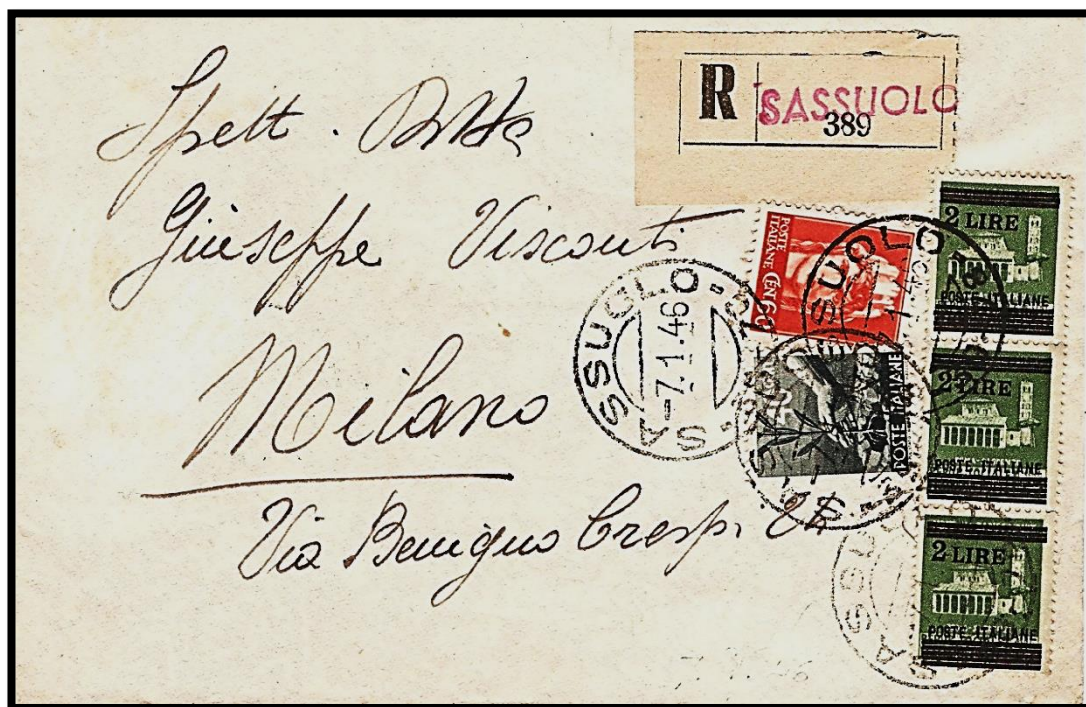 R SASSUOLO
389
Spett. Ditta
Giuseppe Visconti
Milano
Via Benigno Crespi
SASSUOLO
-7.1.46
POSTE
ITALIANE CEN 60
POSTE ITALIANE
2 LIRE
POSTE ITALIANE
2 LIRE
POSTE ITALIANE
2 LIRE
POSTE ITALIANE
SASSUOLO
SASSUO